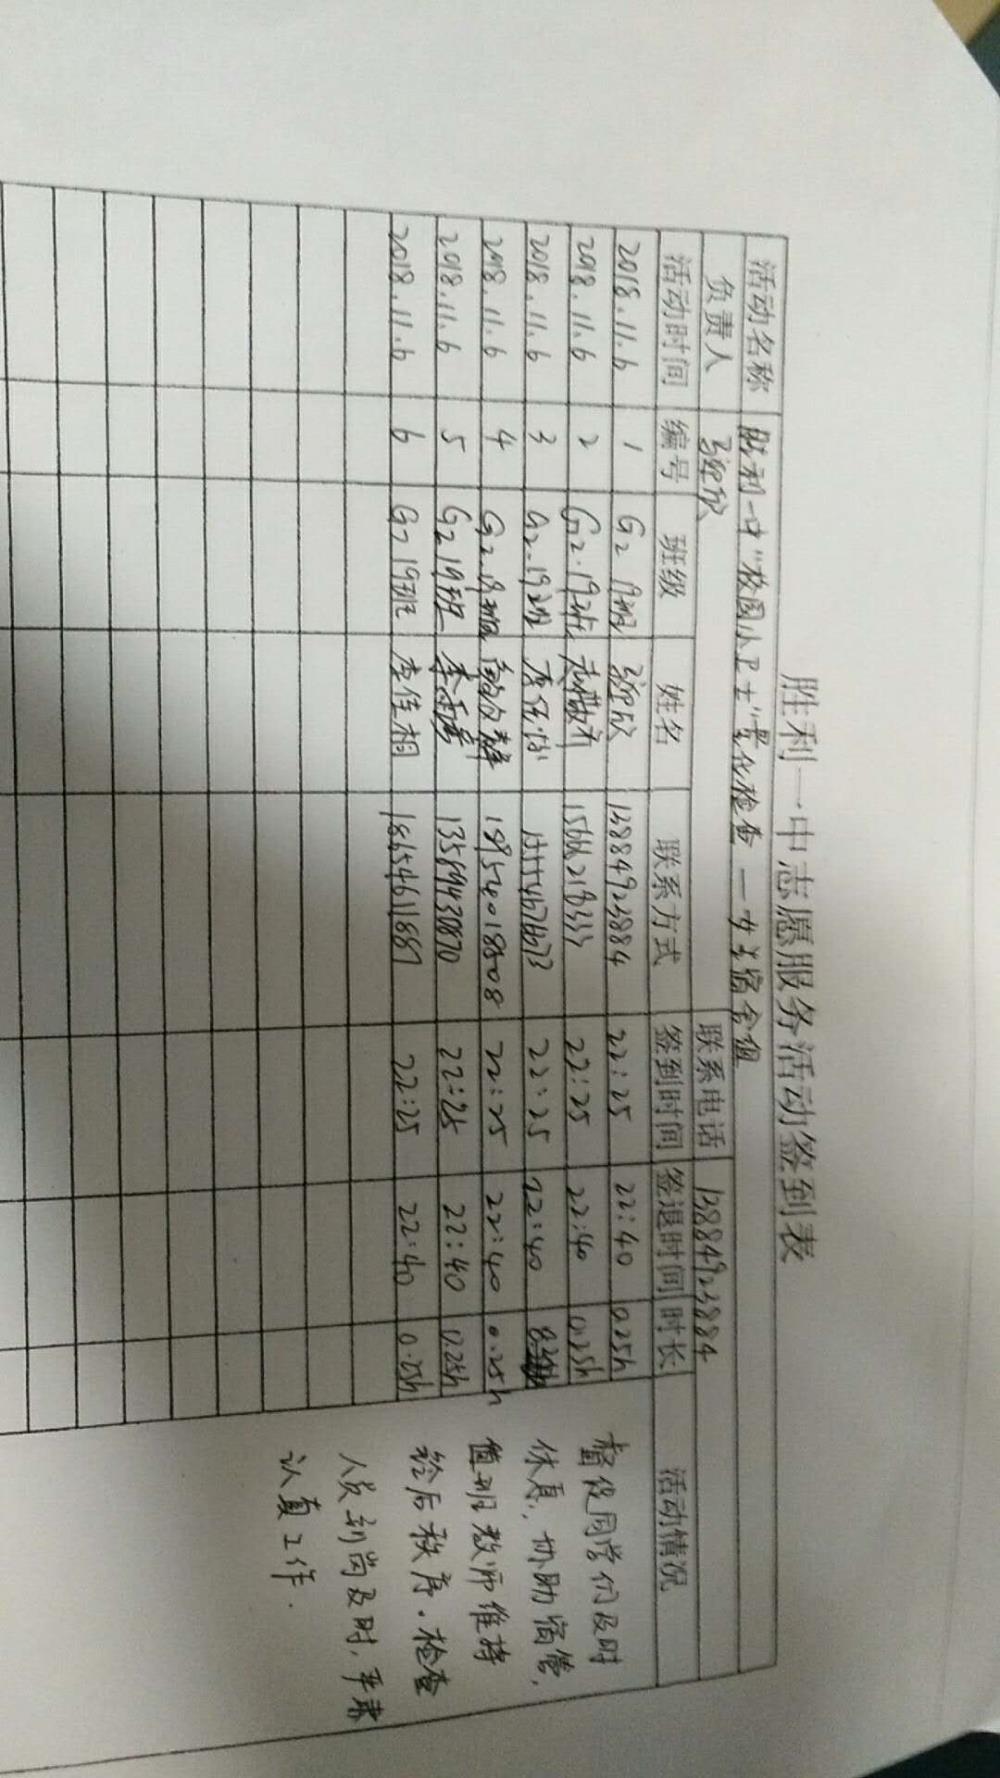 胜利一中志愿服务活动签到表
活动名称 胜利一中"校园小卫士"量化检查—女生宿舍组
负责人 联系电话 13884923884
活动时间 编号 班级 姓名 联系方式 签到时间 签退时间 时长 活动情况
2018.11.6 1 G2 19班 13884923884 22:25 22:40 0.25h
2018.11.6 2 G2.19班 22:25 22:40 0.25h
2018.11.6 3 G2-19班 22:25 22:40
2018.11.6 4 G2.19班 18954018808 22:25 22:40 0.25h
2018.11.6 5 G2 19班 22:25 22:40 0.25h
2018.11.6 6 G2 19班 李佳桐 18654611887 22:25 22:40 0.25h
督促同学们及时
休息,协助宿管,
值班教师维持
铃后秩序.检查
人员到岗及时,严肃
认真工作.